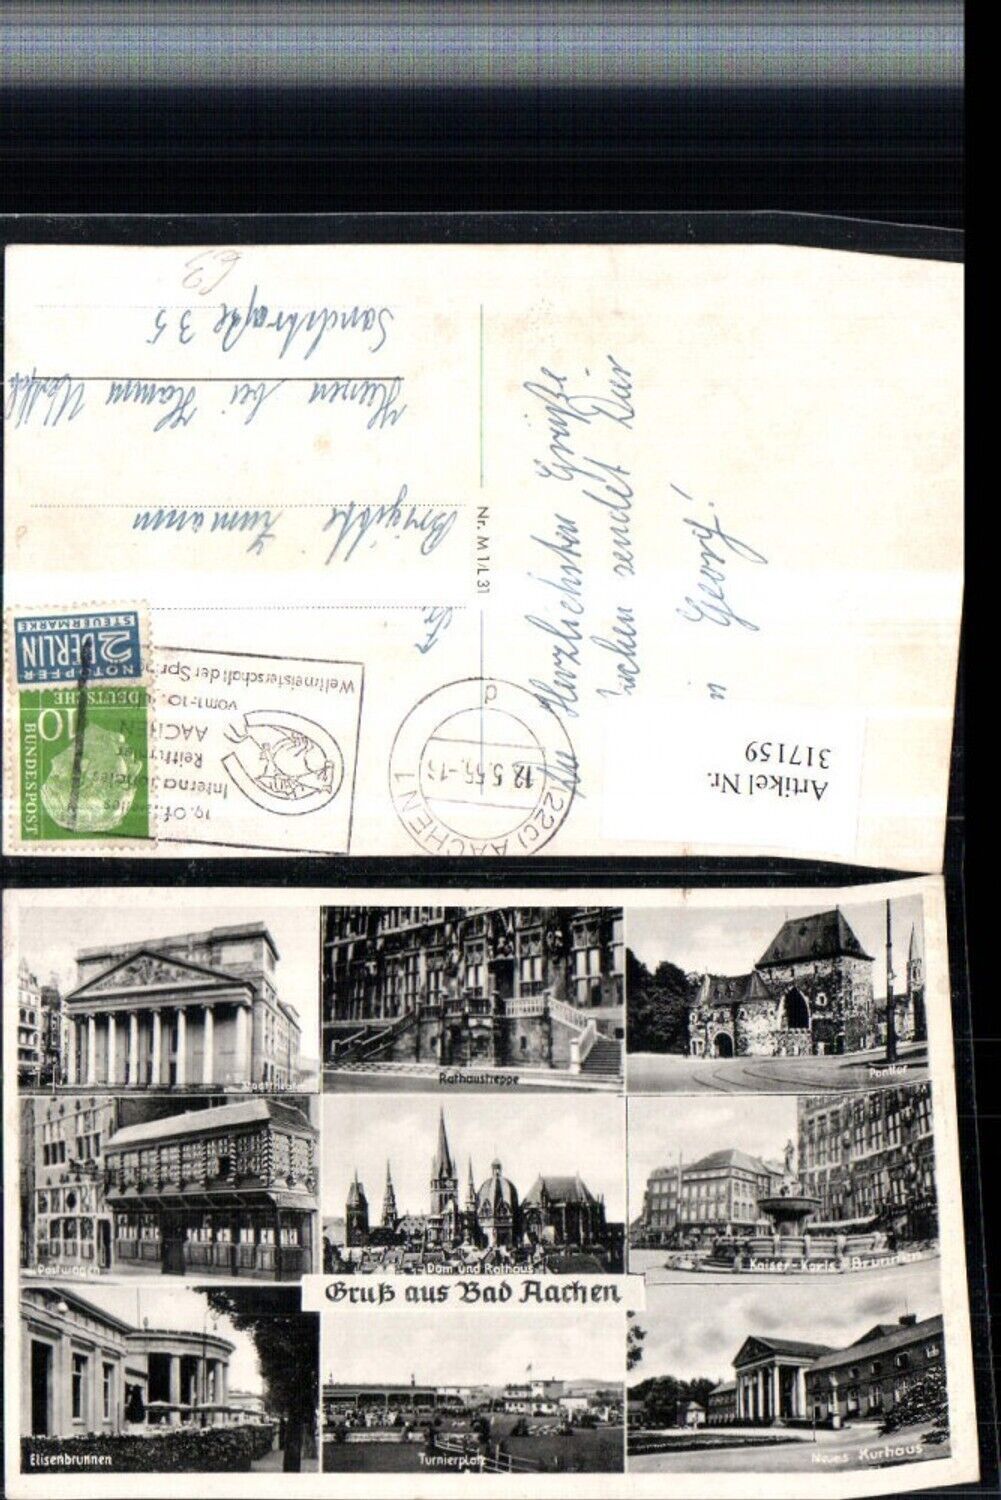 63
Sandstraße 35
Hessen bei Hamm Westf.
Brigitte
Nr. M 1/L 31
Herzlichsten Grüße
sendet Dir
Georg!
NOTOPFER
2 BERLIN
STEUERMARKE
DEUTSCHE
BUNDESPOST
10
19. Offizielles
Internationales
Reitturnier
AACHEN
vom 1.-10.
Weltmeisterschaft der
(22c) AACHEN 1
d
Artikel Nr.
317159
Stadttheater
Rathaustreppe
Ponttor
Postwagen
Dom und Rathaus
Kaiser-Karls-Brunnen
Gruß aus Bad Aachen
Elisenbrunnen
Turnierplatz
Neues Kurhaus